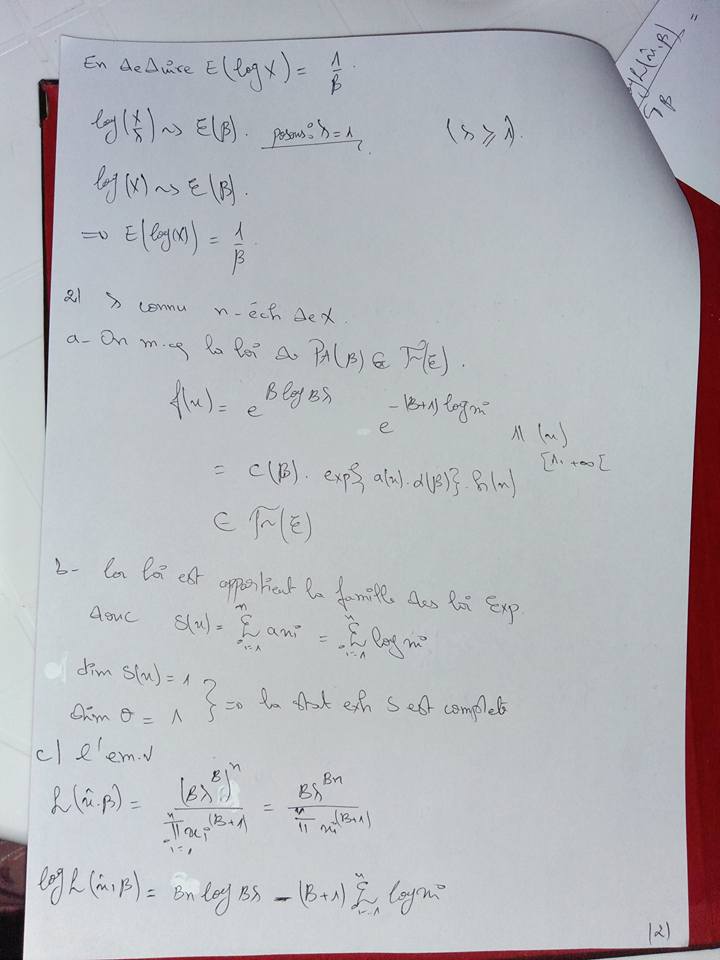 En deduire E(log X) = 1/β
log(x/λ) ~> E(β). posons: λ = 1 (λ ≥ 1)
log(X) ~> E(β).
=> E(log(X)) = 1/β.
2) λ connu n-éch de X.
a- On m.q la loi de PA(β) ∈ F(E).
f(x) = e^{B log Bλ} e^{-(B+1) log xi} 11(x) [1, +∞[
= c(β). exp{a(x).d(β)}.h(x)
∈ F(E)
b- la loi est appartient la famille des loi Exp.
donc S(x) = Σ_{i=1}^{n} a xi = Σ_{i=1}^{n} log xi
dim S(x) = 1
dim θ = 1 } => la stat exh S est complete
c) l'em.v
L(x̂.β) = (Bλ^B)^n / Π_{i=1}^{n} xi^{(B+1)} = Bλ^{Bn} / Π^{n} xi^{(B+1)}
log L(x̂, β) = Bn log Bλ - (B+1) Σ_{i=1}^{n} log xi
(2)